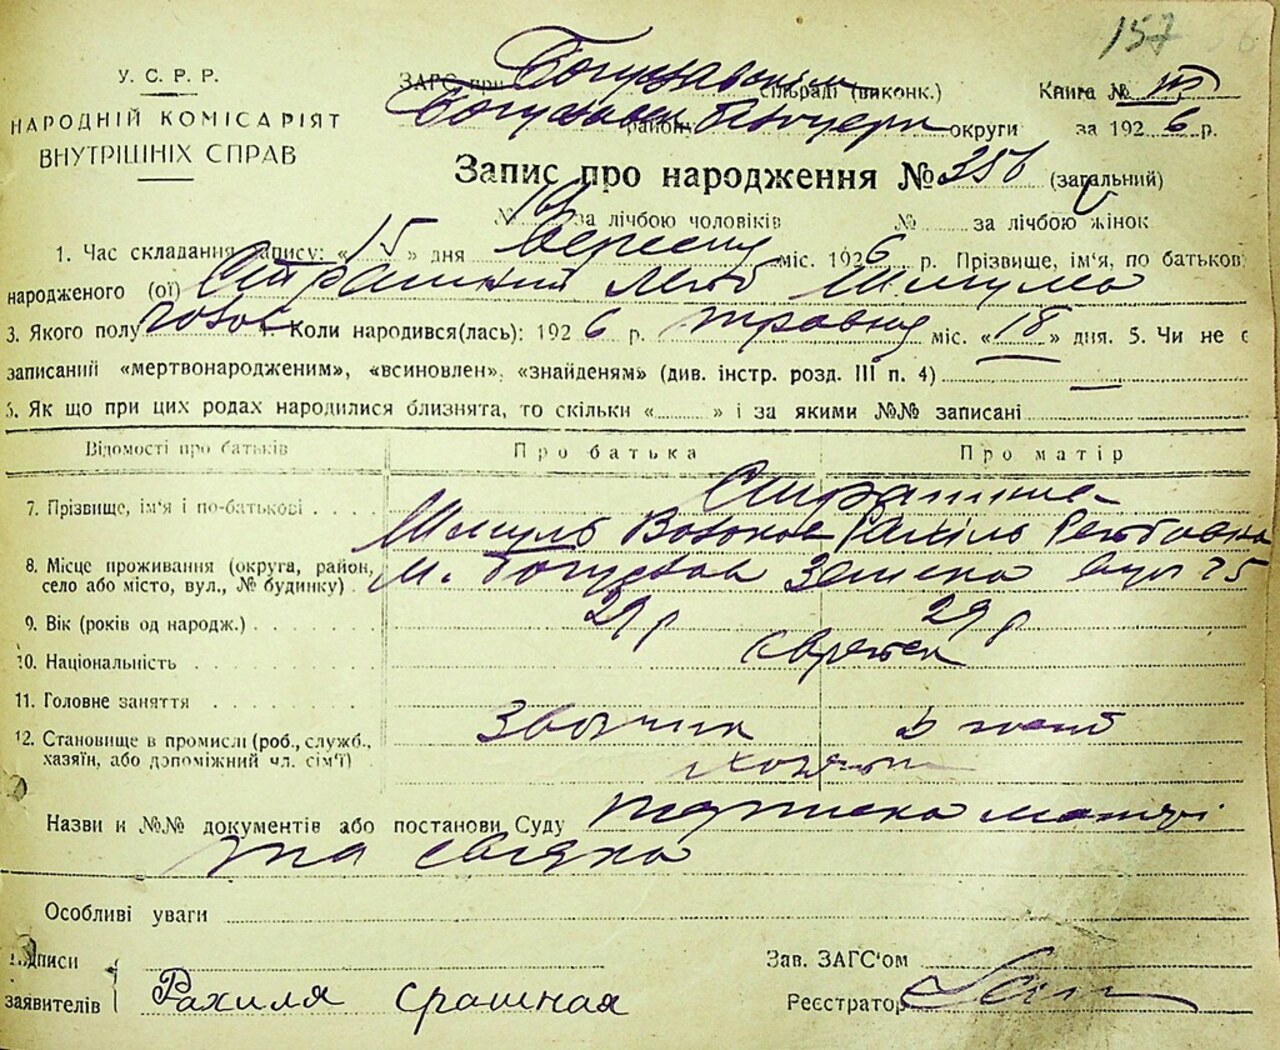 157
У. С. Р. Р.
НАРОДНІЙ КОМІСАРІЯТ
ВНУТРІШНІХ СПРАВ
ЗАГС при сільраді (виконк.)
району округи
Книга № VII
за 1926 р.
Запис про народження № 356 (загальний)
№ за лічбою чоловіків № за лічбою жінок
1. Час складання запису: «15» дня вересня міс. 1926 р. Прізвище, ім'я, по батьков
народженого (ої) Страшний Лейб Шмуль
3. Якого полу чолов 4. Коли народився(лась): 1926 р. травня міс. «18» дня. 5. Чи не є
записаний «мертвонародженим», «всиновлен», «знайденям» (див. інстр. розд. III п. 4) —
6. Як що при цих родах народилися близнята, то скільки « » і за якими №№ записані
Відомості про батьків Про батька Про матір
7. Прізвище, ім'я і по-батькові . . . Страшне
Шмуль Рахіль
8. Місце проживання (округа, район, село або місто, вул., № будинку) . м. Богуслав 25
9. Вік (років од народж.) . . . . 29 р 29 р
10. Національність . . . . . євреї
11. Головне заняття . . . . . . . .
12. Становище в промислі (роб., служб., хазяїн, або допоміжний чл. сім'ї) . Звозчик
Назви и №№ документів або постанови Суду підписка матері
та свідка
Особливі уваги
Підписи
заявителів Рахиля срашная
Зав. ЗАГС'ом
Реєстратор